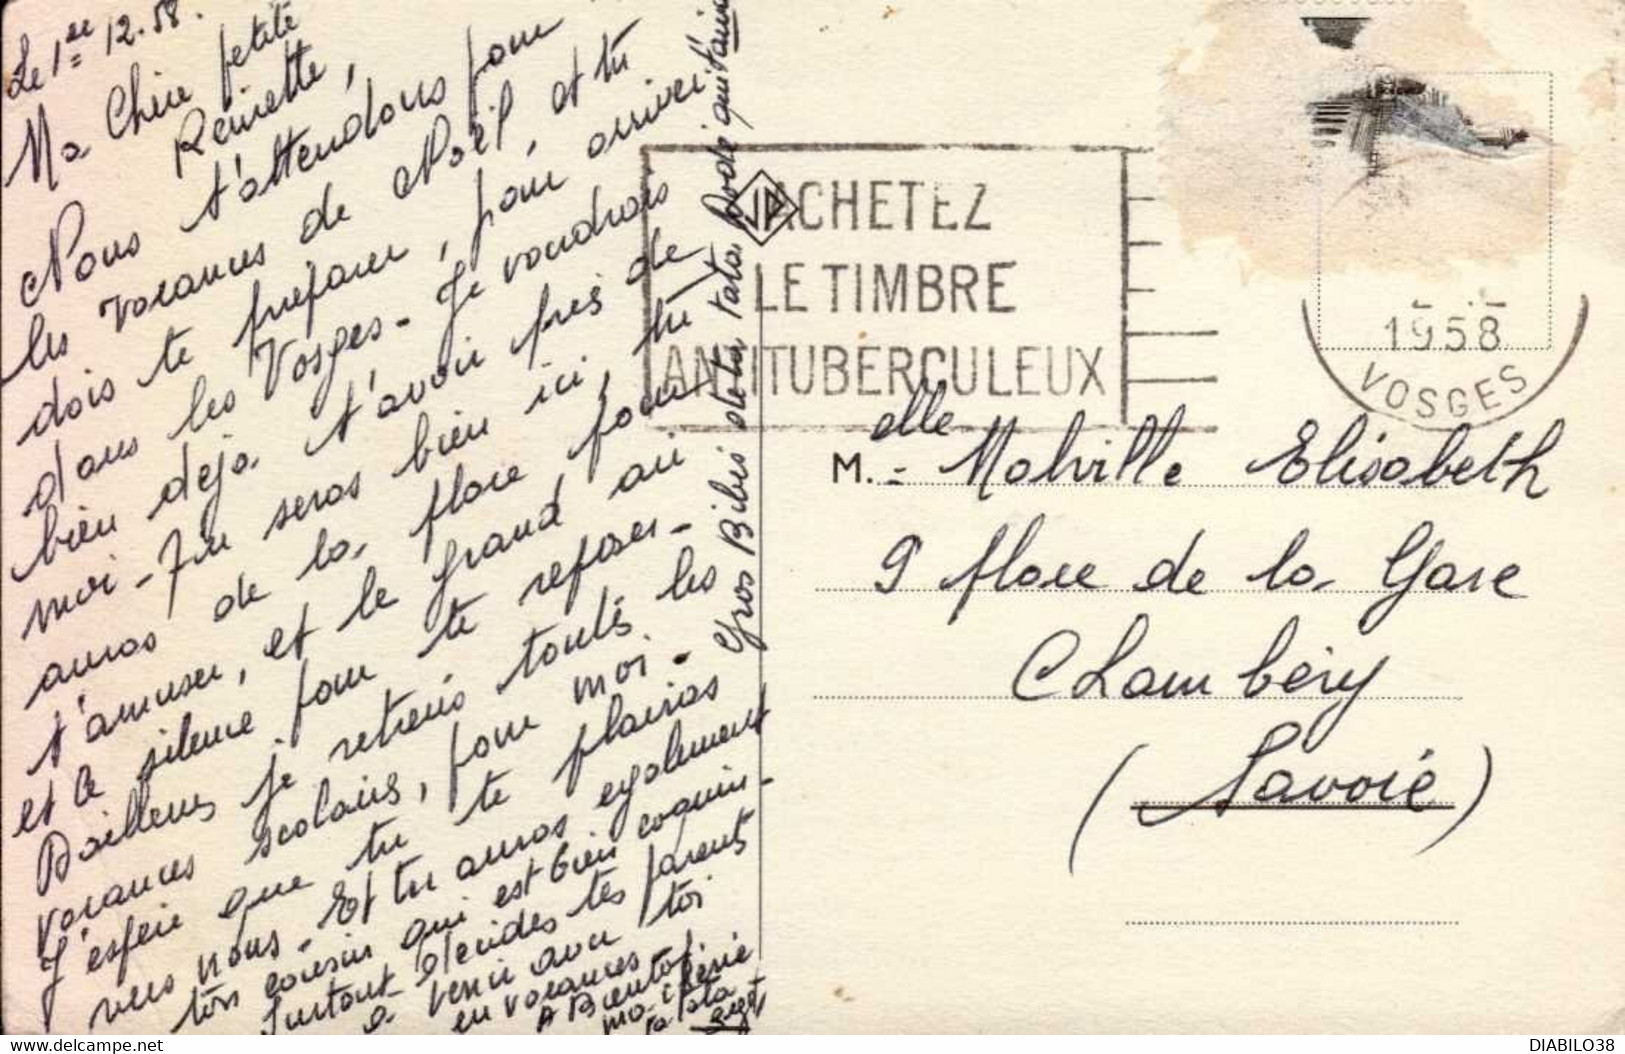 Le 1er 12.58.
Ma Chère petite
Reinette,
Nous t'attendons pour
les vacances de Noël, et tu
dois te préparer, pour arriver
dans les Vosges - Je voudrais
bien déjà t'avoir près de
moi - Tu seras bien ici, tu
auras de la place pour
t'amuser, et le grand air
et le silence pour te reposer -
D'ailleurs je retiens toutes les
vacances scolaires, pour moi -
J'espère que tu te plairas
vers nous - Et tu auras également
ton cousin qui est bien coquin -
Surtout décides tes parents
à venir avec toi
en vacances -
A Bientôt
ma chérie
ta tata
Gros Bibis de ta tata Dodé qui t'aime
ACHETEZ
LE TIMBRE
ANTITUBERCULEUX
1958
VOSGES
M.elle Malville Elisabeth
9 place de la Gare
Chambéry
(Savoie)
DIABILO38